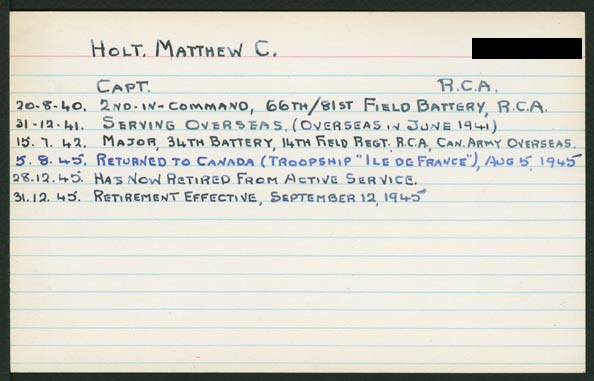 HOLT, MATTHEW C.
CAPT. R.C.A.
20-8-40. 2ND-IN-COMMAND, 66TH/81ST FIELD BATTERY, R.C.A.
31-12-41. SERVING OVERSEAS. (OVERSEAS IN JUNE 1941)
15. 7. 42. MAJOR, 34TH BATTERY, 14TH FIELD REGT. R.C.A, CAN. ARMY OVERSEAS.
5. 8. 45. RETURNED TO CANADA (TROOPSHIP "ILE DE FRANCE"), AUG 5, 1945
28.12.45. HAS NOW RETIRED FROM ACTIVE SERVICE.
31.12.45. RETIREMENT EFFECTIVE, SEPTEMBER 12, 1945